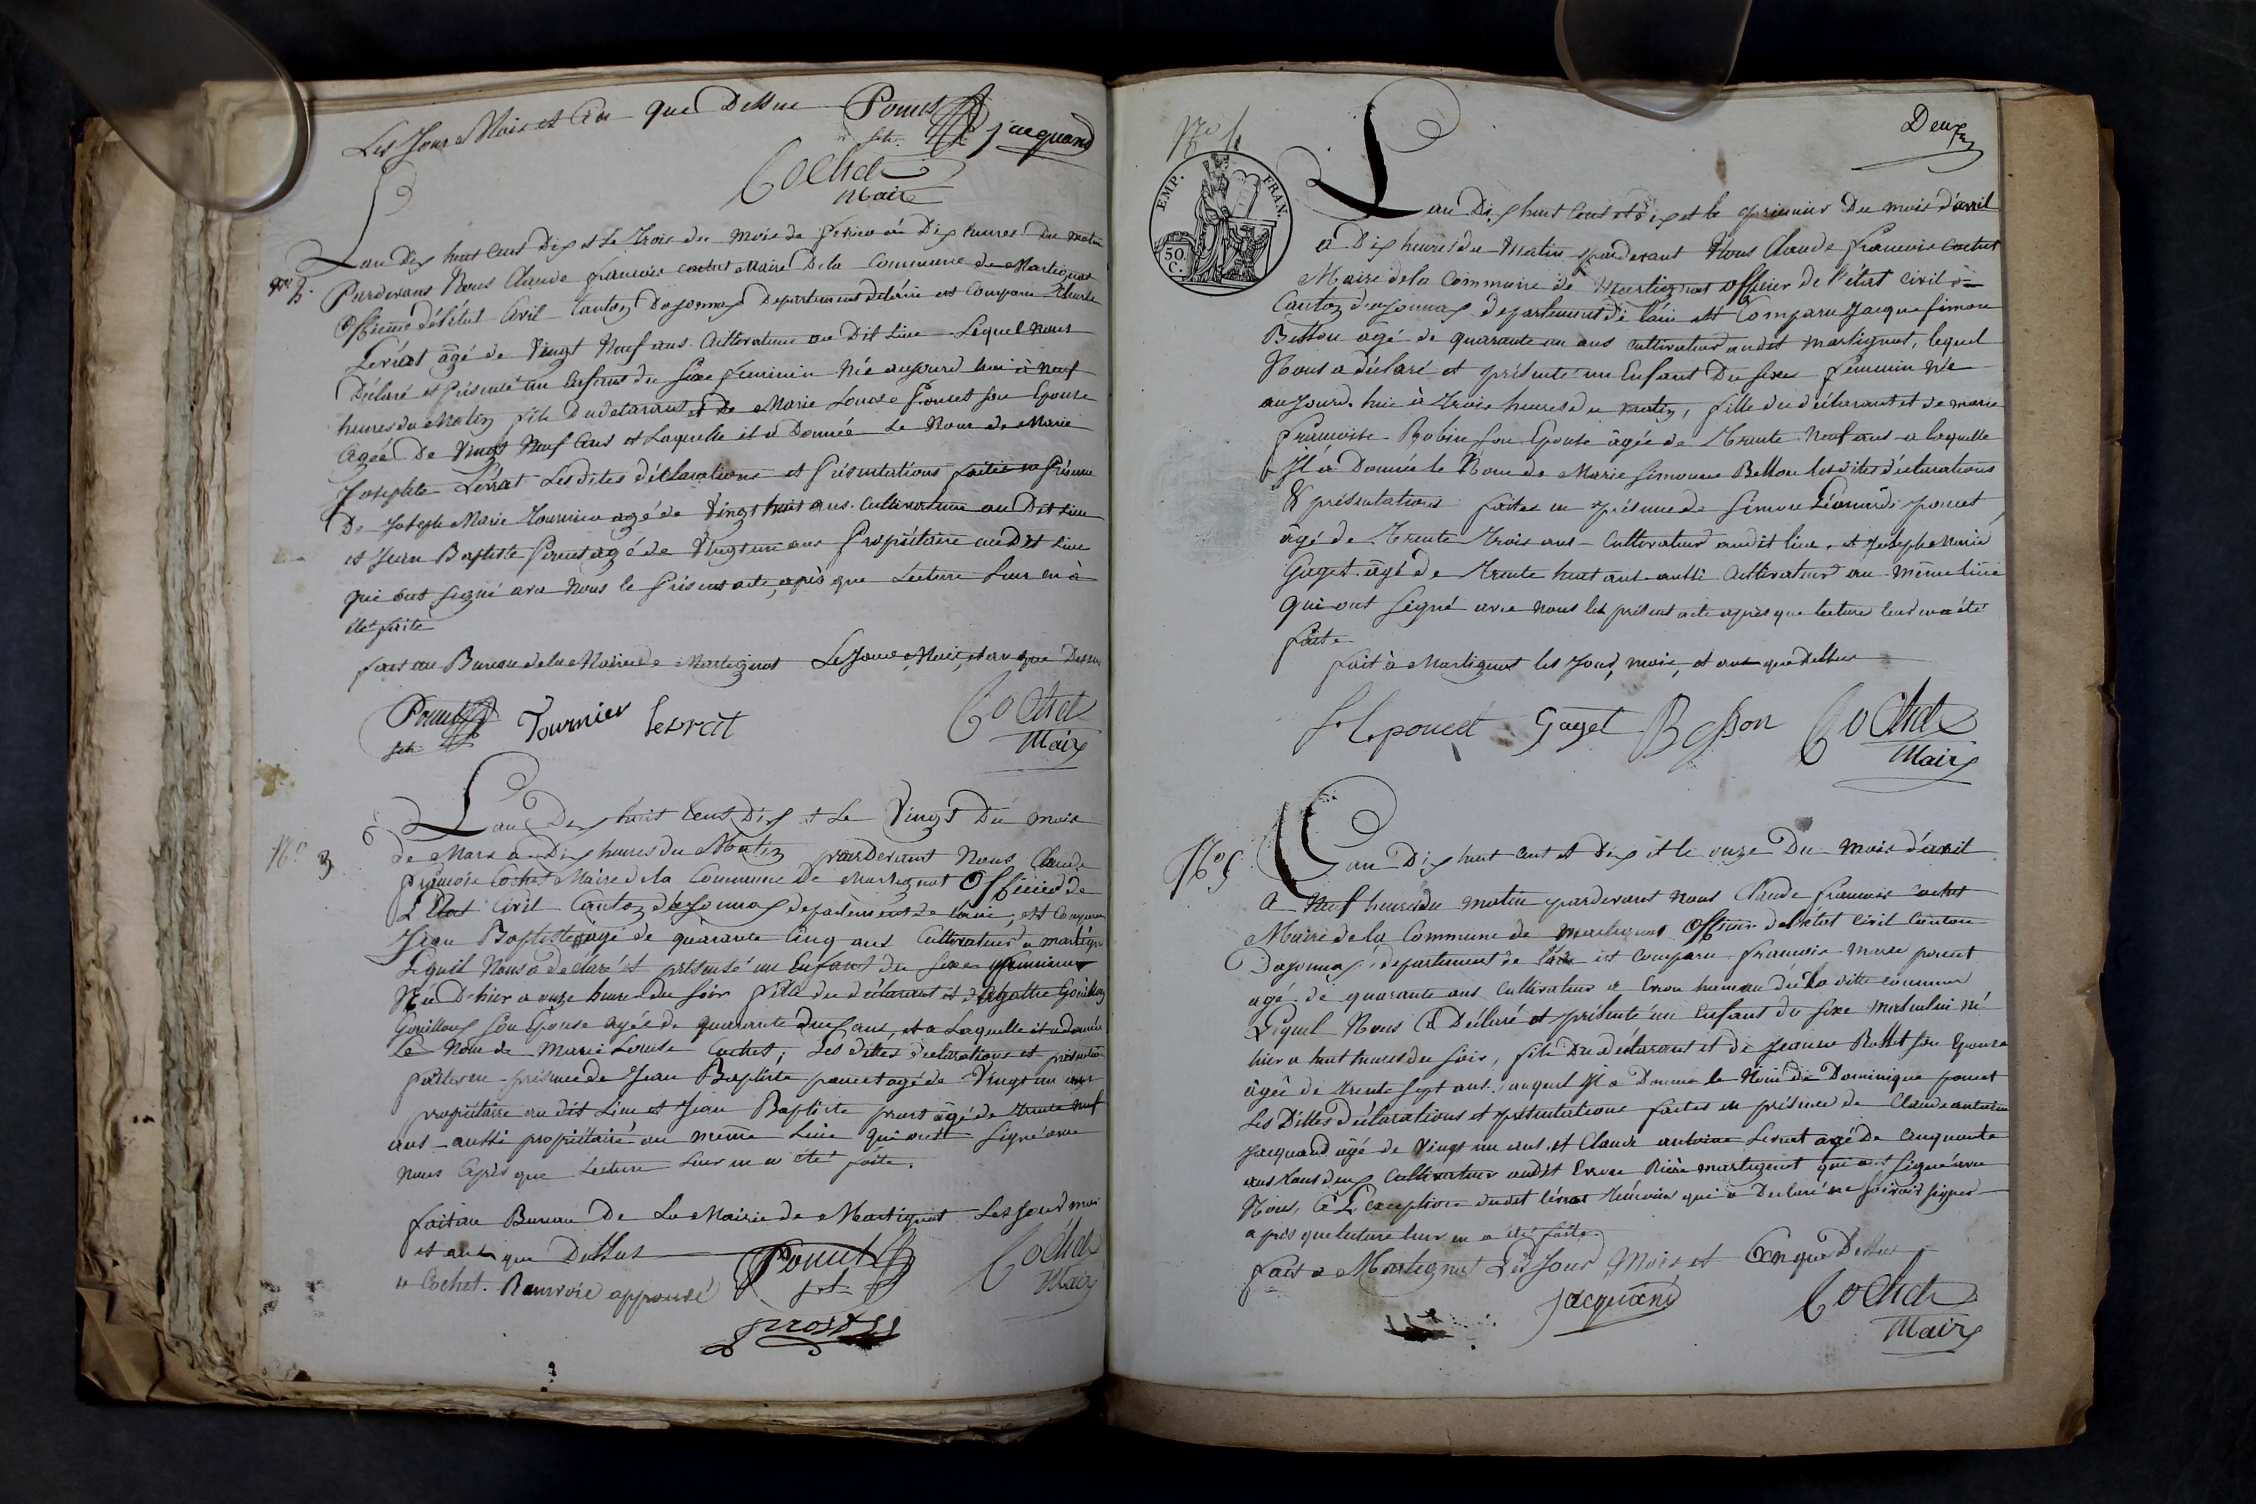 Les Jour Mois et An que Dessus Poncet
jacquand
Cochet
Maire
No 2.
L'an Dix huit Cent Dix et Le Trois du mois de Février à Dix heures Du matin
Pardevant Nous Claude François cochet Maire De la Commune de Martignat
Officier de l'état Civil Canton Doyonnax Departement de l'ain est Comparu
Levrat âgé de Vingt Neuf ans Cultivateur au Dit Lieu Lequel nous
Déclaré et Présenté un Enfant du Sexe Feminin Née aujourd'hui à neuf
heures du Matin fille du declarant et de Marie Louise Poncet son Epouse
Agée De Vingt Neuf Ans et Laquelle il a Donnée Le Nom de Marie
Josephte Levrat Lesdites déclarations et Présentations faites en Présence
De Joseph Marie Tournier agé de Vingt huit ans Cultivateur au Dit Lieu
et Jean Baptiste Poncet agé de Vingt un ans Propriétaire audit Lieu
qui ont signé avec Nous le Présent acte, après que Lecture Leur en à
été faite
fait au Bureau de la Mairie de Martignat Les Jour, Mois, et an que Dessus
Poncet Tournier Levrat Cochet
Maire
No 3
L'an Dix huit Cent Dix et Le Vingt Du mois
de Mars a Dix heures du Matin pardevant Nous Claude
François Cochet Maire de la Commune De Martignat Officier de
L'Etat Civil Canton d'oyonnax departement de l'ain, est Comparu
Jean Baptiste agé de quarante Cinq ans Cultivateur a martignat
Lequel Nous a déclaré et présenté un Enfant du sexe feminin
Née D'hier a onze heures du soir fille du déclarant et d'Agathe
Gouilloux son Epouse agée de quarante deux ans, et a Laquelle il a donnée
Le Nom de Marie Louise Cochet, Les dittes declarations et présentations
faites en présence de Jean Baptiste poncet agé de Vingt un ans
propriétaire au dit Lieu et Jean Baptiste prost âgé de trente neuf
ans aussi propriétaire au même Lieu qui ont signé avec
nous après que Lecture Leur en a été faite.
fait au Bureau De La Mairie de Martignat Les jour mois
et an que Dessus Poncet Cochet
Maire
" Cochet. Renvoie approuvé
prost
Deux
No 4
EMP. FRAN.
50. C.
L'an Dix huit Cent et dix et le premier Du mois d'avril
a Dix heures du Matin pardevant Nous Claude François cochet
Maire de la Commune de Martignat officier de l'état civil
Canton d'oyonnax departement de l'ain est Comparu Jacque Simon
Besson âgé de quarante un ans cultivateur audit martignat, lequel
Nous a déclaré et présenté un Enfant Du sexe féminin née
aujourd'hui à trois heures du matin, fille du déclarant et de marie
Françoise Robin son Epouse âgée de Trente Neuf ans a laquelle
Il a Donnée le Nom de Marie Simonne Besson les dites déclarations
& présentations faites en présence de Simon Léonard poncet
âgé de Trente Trois ans Cultivateur audit lieu, et Joseph Marie
Gaget âgé de trente huit ans aussi Cultivateur au même lieu
qui ont signé avec nous le présent acte après que lecture leur en a été
faite
fait à Martignat les Jour, mois, et an que dessus
S L poncet Gaget Besson Cochet
Maire
No 5
L'an Dix huit Cent et Dix et le onze Du mois d'avril
a Neuf heures du matin pardevant nous Claude François cochet
Maire de la Commune de martignat Officier de l'état Civil Canton
Doyonnax, departement de l'ain est comparu François Marie poncet
agé de quarante ans cultivateur a Evron hameau de la ditte commune
Lequel Nous A Déclaré et présenté un Enfant du sexe masculin né
hier a huit heures du soir, fils Du déclarant et de Jeanne Rollet son Epouse
âgée de trente sept ans, auquel Il a Donné le Nom de Dominique poncet
Les Dittes déclarations et présentations faites en présence de Claude antoine
Jacquand âgé de Vingt un ans et Claude antoine Levrat agé De cinquante
ans tous deux Cultivateur audit Evron Rière martignat qui ont signé avec
Nous, A L'exception dudit Levrat témoin qui a Declaré ne savoir signer
après que lecture leur en a été faite.
fait a Martignat Les Jour Mois et An que Dessus
jacquand Cochet
Maire